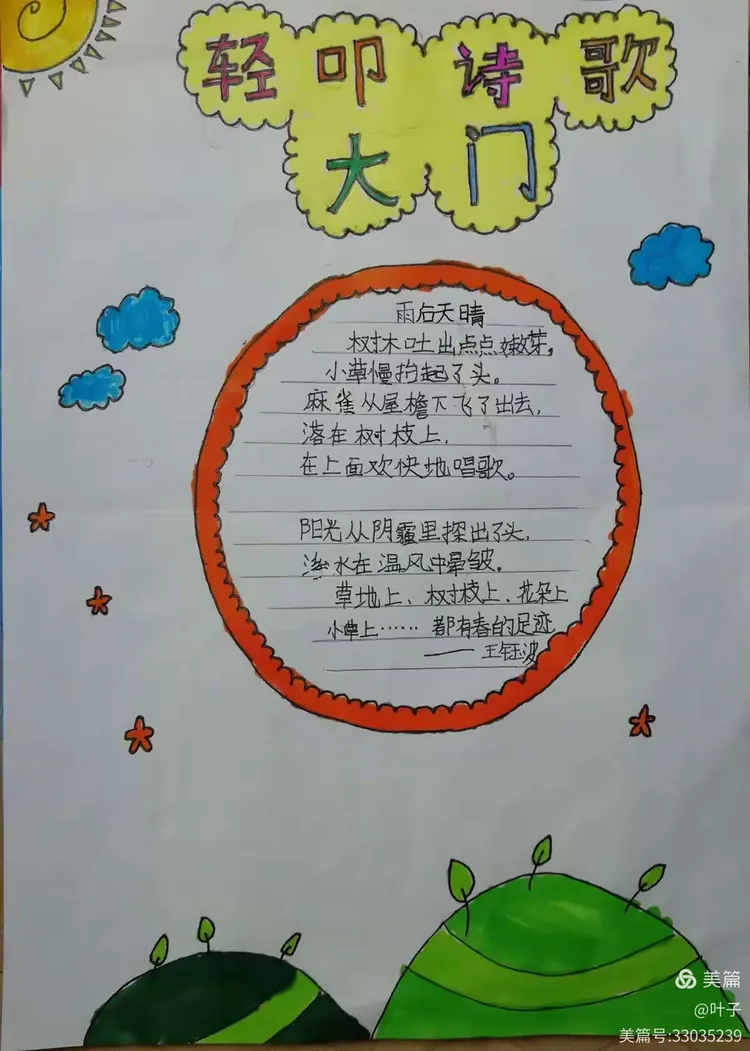 轻叩诗歌
大门
雨后天晴
树木吐出点点嫩芽,
小草慢抬起了头。
麻雀从屋檐下飞了出去,
落在树枝上,
在上面欢快地唱歌。
阳光从阴霾里探出了头,
水在温风中晕皱。
草地上、树枝上、花朵上
小草上…… 都有春的足迹
——王钰波
美篇
@叶子
美篇号:33035239